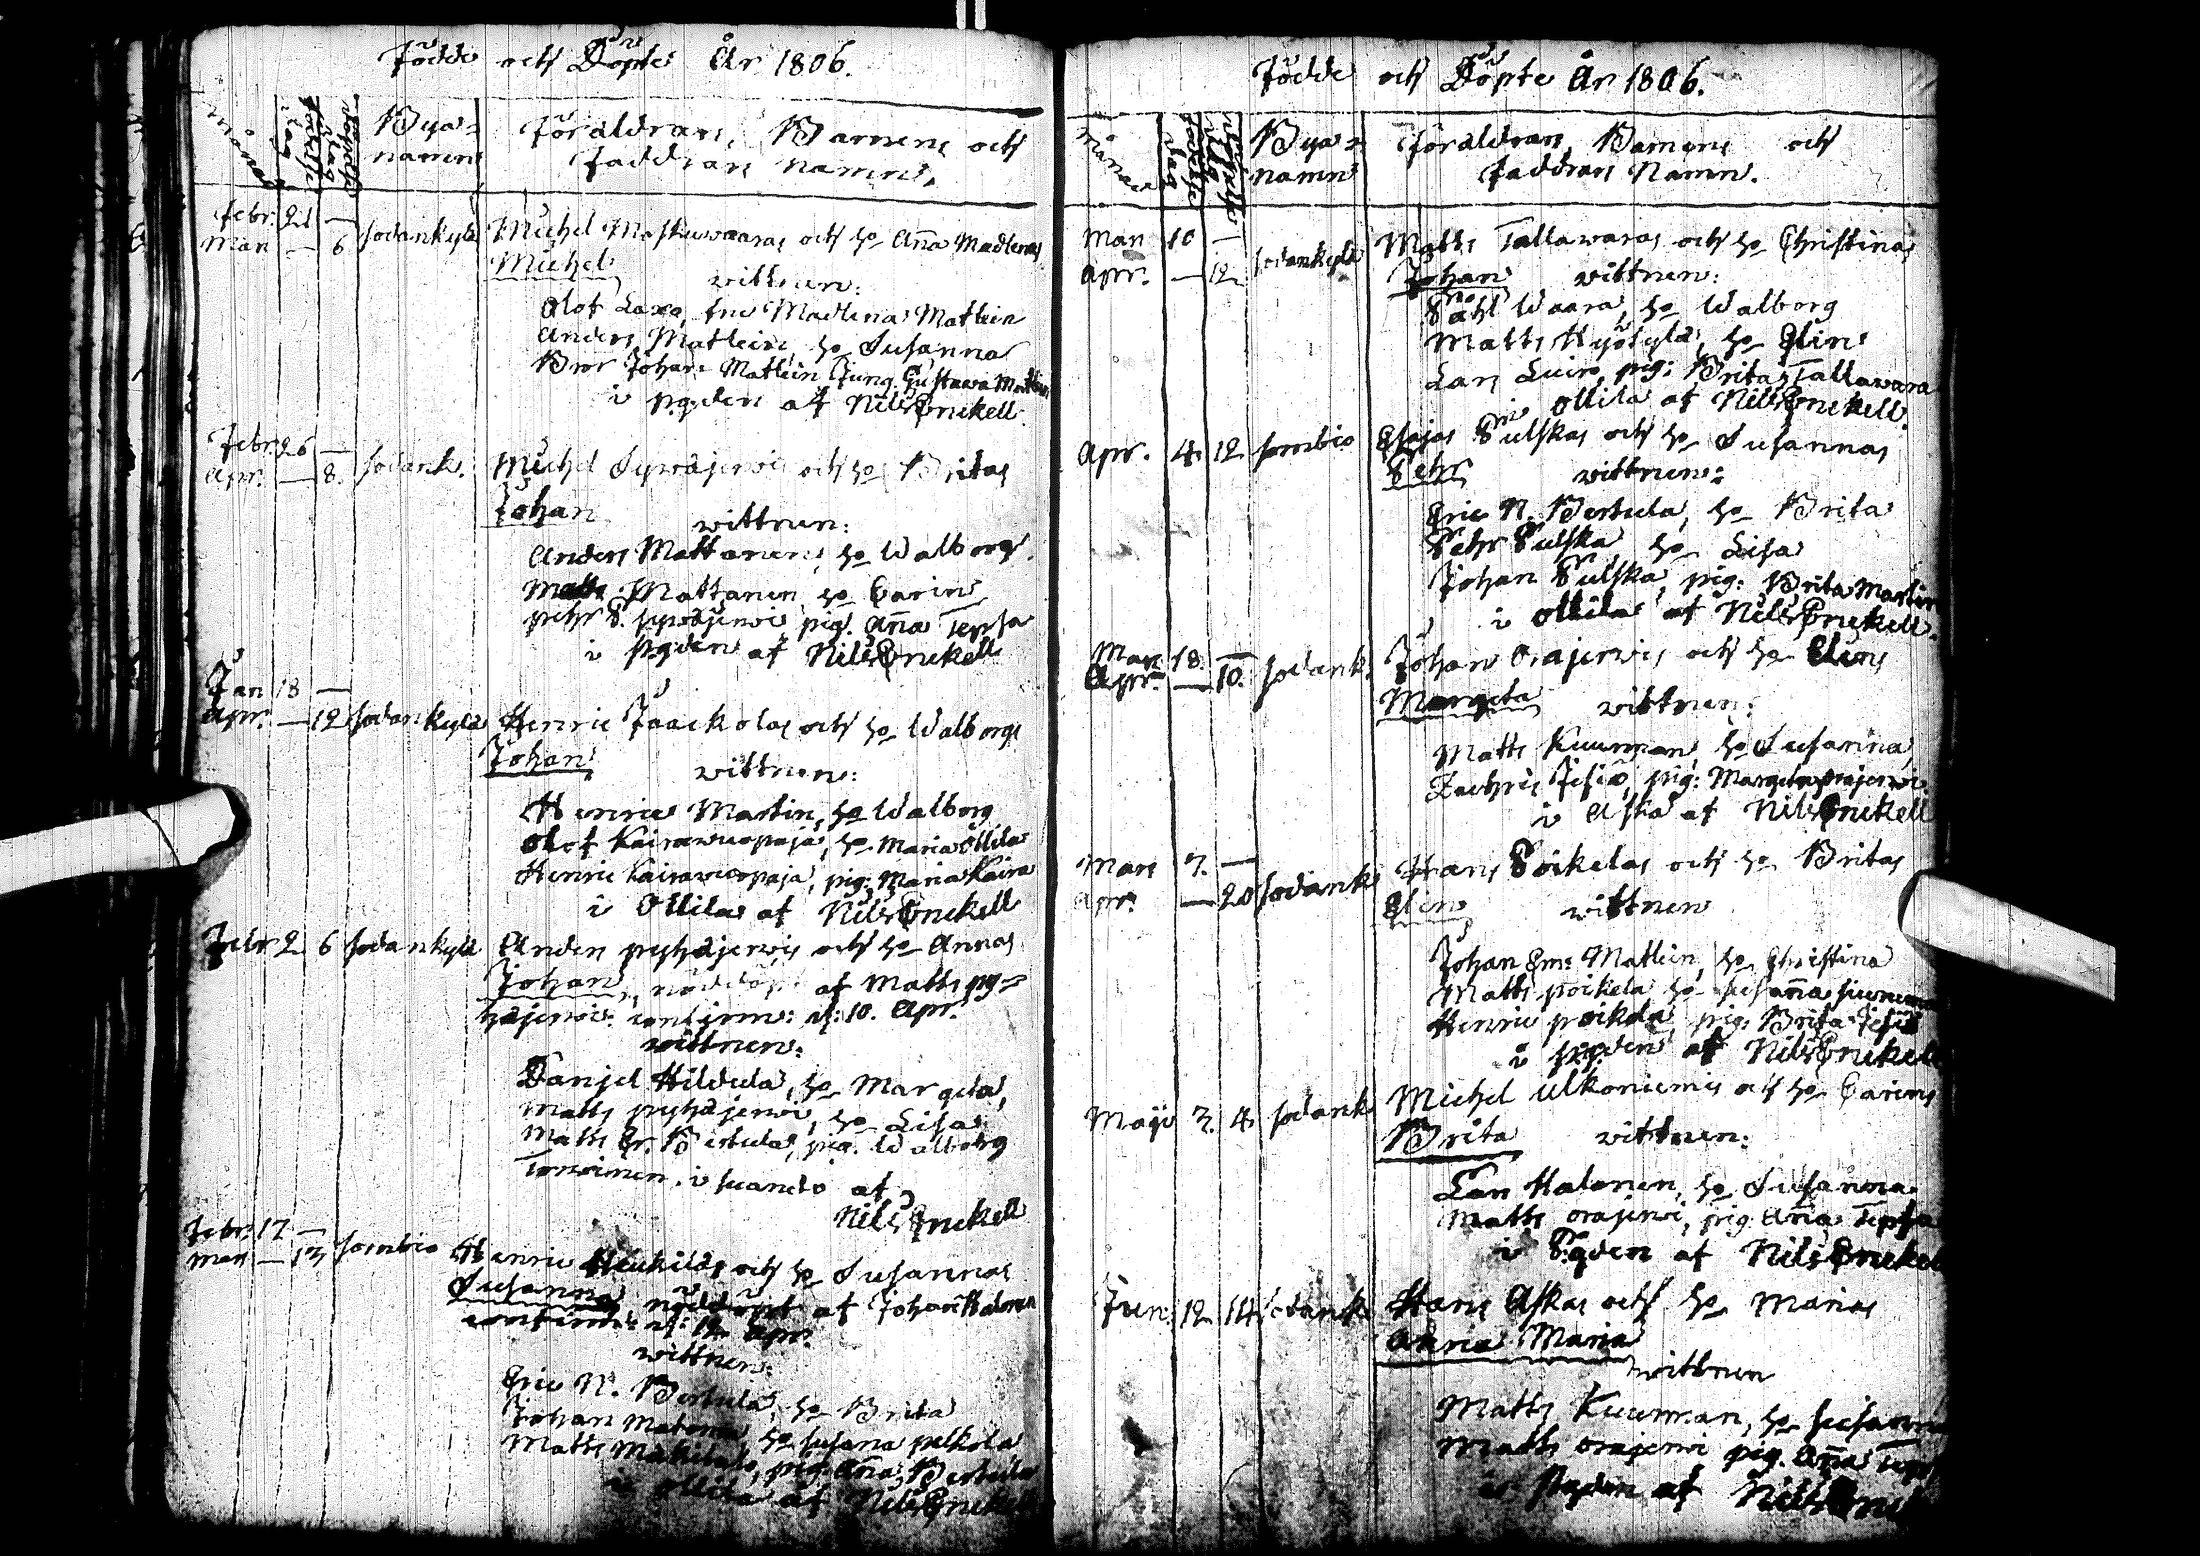 Födde och Döpte År 1806.
månad
födelse dag
döpelse dag
Bya=
namn
Föräldrars, Barnens och
Faddrars namn.
Febr. 21 —
Mars — 6 Sodankylä
Michel Maskuwaaras och ho Aña Madlenas
Michel
wittnen:
Olof Laxa, fru Madlena Matlein
Anders Matlein, ho Susanna
Bror Johan Matlein Jung. Gustava Matlein
i pgden af Nils Enckell.
Febr. 26 —
Apr. — 8. Sodank.
Michel Sywäjerwis och ho Britas
Johan
wittnen:
Anders Mattanen, ho Walborg.
Matts Mattanen ho Carin
pehr P. sywäjerwi pig. Aña Tepsa
i pgden af Nils Enckell
Jan 18 —
Apr. — 12 Sodankylä
Henric Jaackolas och ho Walborgs
Johan
wittnen:
Henric Martin, ho Walborg
Olof Kairawuopaja, ho Maria Ollila
Henric Kairawuopaja, pig: Maria Kaira
i Ollila af Nils Enckell
Febr. 2 6 Sodankylä
Anders pyhäjerwis och ho Annas
Johan, nöddöpt af Matts py=
häjerwi: confirm: d: 10. Apr.
wittnen:
Danjel Hildula, ho Margeta,
Matts pyhäjerwi, ho Lisa
Matts Er. Bertula, pig. Walborg
Torwinen, i suando af
Nils Enckell
Febr. 17 —
Mars — 13 Sombio
Henric Heikiläs och ho Susannas
Susanna, nöddöpt af Johan Halonen
confirm: d: 12 Apr.
wittnen:
Eric N. Bertula, ho Brita
Johan ho Susana pelkola
Matts pig. Aña Bertula
i Ollila af Nils Enckell
Födde och Döpte År 1806.
månad
födelse dag
döpelse dag
Bya=
namn
Föräldrars, Barnens och
Faddrars Namn.
Mars 10 —
Apr. — 12 Sodankylä
Matts Tallawaras och ho Christinas
Johan wittnen:
Påhl Waara, ho Walborg
Matts Hyötylä, ho Elin
Lars Luiro, pig: Brita Tallawara
i Ollila af Nils Enckell.
Apr. 4. 12 Sombio
Esajas Pulskas och ho Susannas
Pehr wittnen:
Eric N. Bertula, ho Brita
Pehr Pulska ho Lisa
Johan Pulska, pig: Brita Martin
i Ollila af Nils Enckell.
Mars 18. —
Apr. — 10. Sodank.
Johan Orajerwis och ho Elins
Margeta wittnen:
Matts Kuurman, ho Susanna,
Zachris Jesiö, pig: Margeta orajerwi
i Aska af Nils Enckell
Mars 7. —
Apr. — 20 Sodank
Hans Poikelas och ho Britas
Elin wittnen
Johan Em: Matlein, ho Christina
Matts poikela ho Susaña
Henric poikela pig. Brita Jesiö
i pgden af Nils Enckell
Maji 3. 4. Sodank
Michel Ulkoniemis och ho Carins
Brita wittnen:
Lars Halonen, ho Susanna
Matts orajerwi, pig: Aña Tepsa
i Pgden af Nils Enckell
Jun: 12 14 Sodank
Hans Askas och ho Marias
Anna Maria
wittnen
Matts Kuurman, ho Susanna
Matts orajerwi pig. Aña Teps
i Pgden af Nils Enck